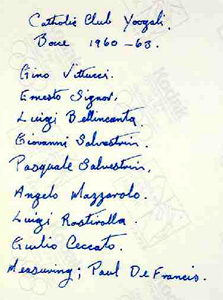 Catholic Club Yoogali.
Boce 1960-63.
Gino Vitucci.
Ernesto Signor.
Luigi Bellincanta
Giovanni Salvestrin.
Pasquale Salvestrin.
Angelo Mazzarolo.
Luigi Rostirolla.
Giulio Ceccato.
Measuring; Paul De Francis.